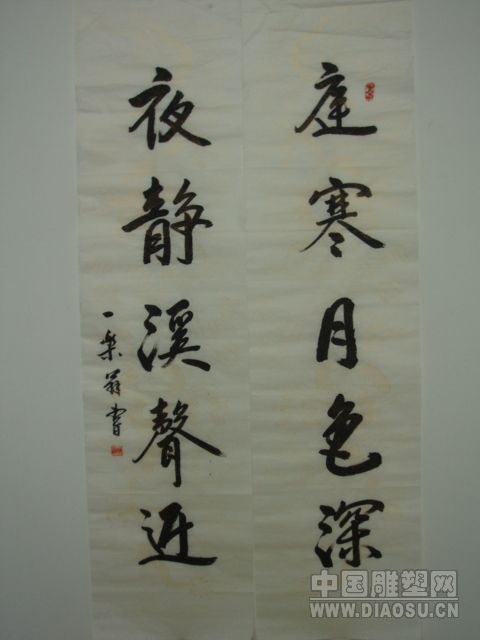 庭寒月色深
夜静溪聲近
一樂翁書
中国雕塑网
WWW.DIAOSU.CN